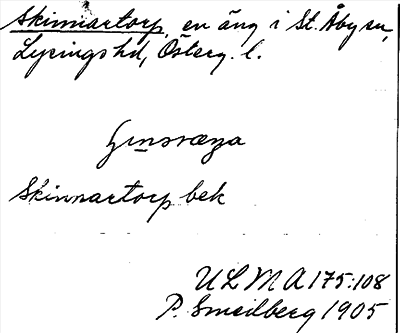 Skinnartorp, en äng i St. Åby sn,
Lysings hd, Österg. l.
Skinnartorp bek
ULMA 175:108
P. Smedberg 1905